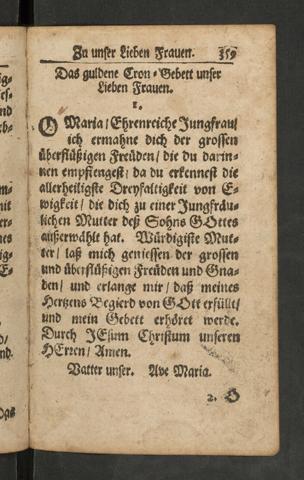 Zu unser Lieben Frauen. 359
Das guldene Cron-Gebett unser
Lieben Frauen.
1.
O Maria/ Ehrenreiche Jungfrau/
ich ermahne dich der grossen
überflüßigen Freüden/ die du darin-
nen empfiengest/ da du erkennest die
allerheiligste Dreyfaltigkeit von E-
wigkeit/ die dich zu einer Jungfräu-
lichen Mutter deß Sohns GOttes
außerwählt hat. Würdigiste Mut-
ter/ laß mich geniessen der grossen
und überflüßigen Freüden und Gna-
den/ und erlange mir/ daß meines
Hertzens Begierd von GOtt erfüllt/
und mein Gebett erhöret werde.
Durch JEsum Christum unseren
HErren/ Amen.
Vatter unser. Ave Maria.
2. O